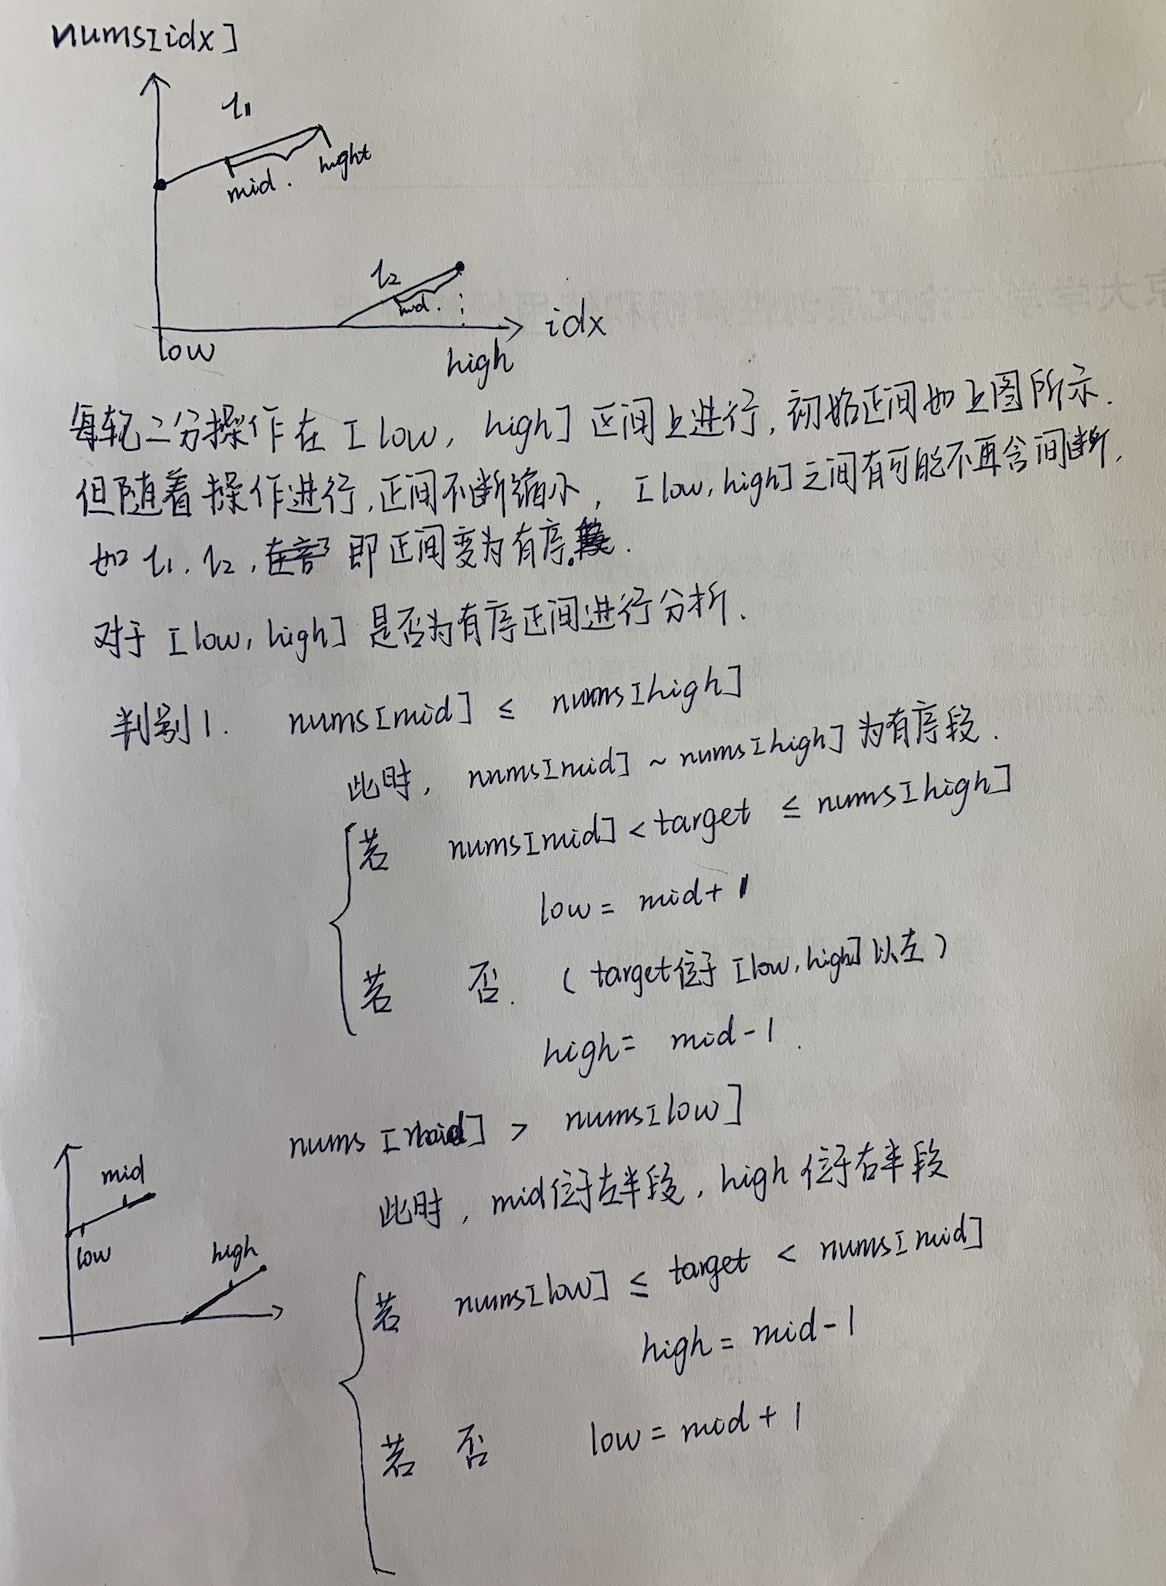 nums[idx]
l1
mid.
hight
l2
mid.
idx
low
high
每轮二分操作在[low, high]区间上进行,初始区间如上图所示.
但随着操作进行,区间不断缩小, [low, high]之间有可能不再含间断,
如l1, l2, 即区间变为有序.
对于[low, high]是否为有序区间进行分析.
判别1. nums[mid] ≤ nums[high]
此时, nums[mid] ~ nums[high]为有序段.
若 nums[mid] < target ≤ nums[high]
low = mid + 1
若 否. (target位于[low, high]以左)
high = mid - 1.
nums[mid] > nums[low]
此时, mid位于左半段, high位于右半段
mid
low
high
若 nums[low] ≤ target < nums[mid]
high = mid - 1
若 否 low = mid + 1